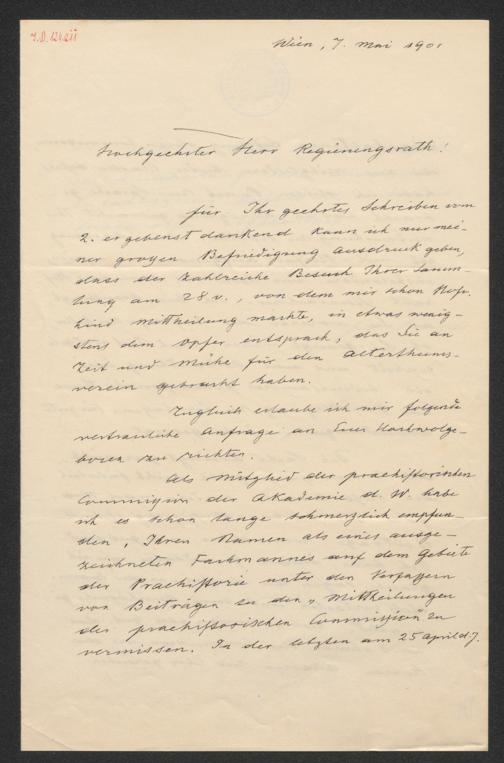 Wien, 7. Mai 1901
Hochgeehrter Herr Regierungsrath!
Für Ihr geehrtes Schreiben vom
2. ergebenst dankend kann ich nur mei-
ner großen Befriedigung Ausdruck geben,
dass der zahlreiche Besuch Ihrer Samm-
lung am 28 v., von dem mir schon Hofr.
Kind Mittheilung machte, in etwas wenig-
stens dem Opfer entsprach, das Sie an
Zeit und Mühe für den Alterthums-
verein gebracht haben.
Zugleich erlaube ich mir folgende
vertrauliche Anfrage an Euer Hochwolge-
boren zu richten.
Als Mitglied der praehistorischen
Commission der Akademie d. W. habe
ich es schon lange schmerzlich empfun-
den, Ihren Namen als eines ausge-
zeichneten Fachmannes auf dem Gebiete
der Praehistorie unter den Verfassern
von Beiträgen zu den „Mittheilungen
der praehistorischen Commission" zu
vermissen. In der letzten am 25 April d. J.